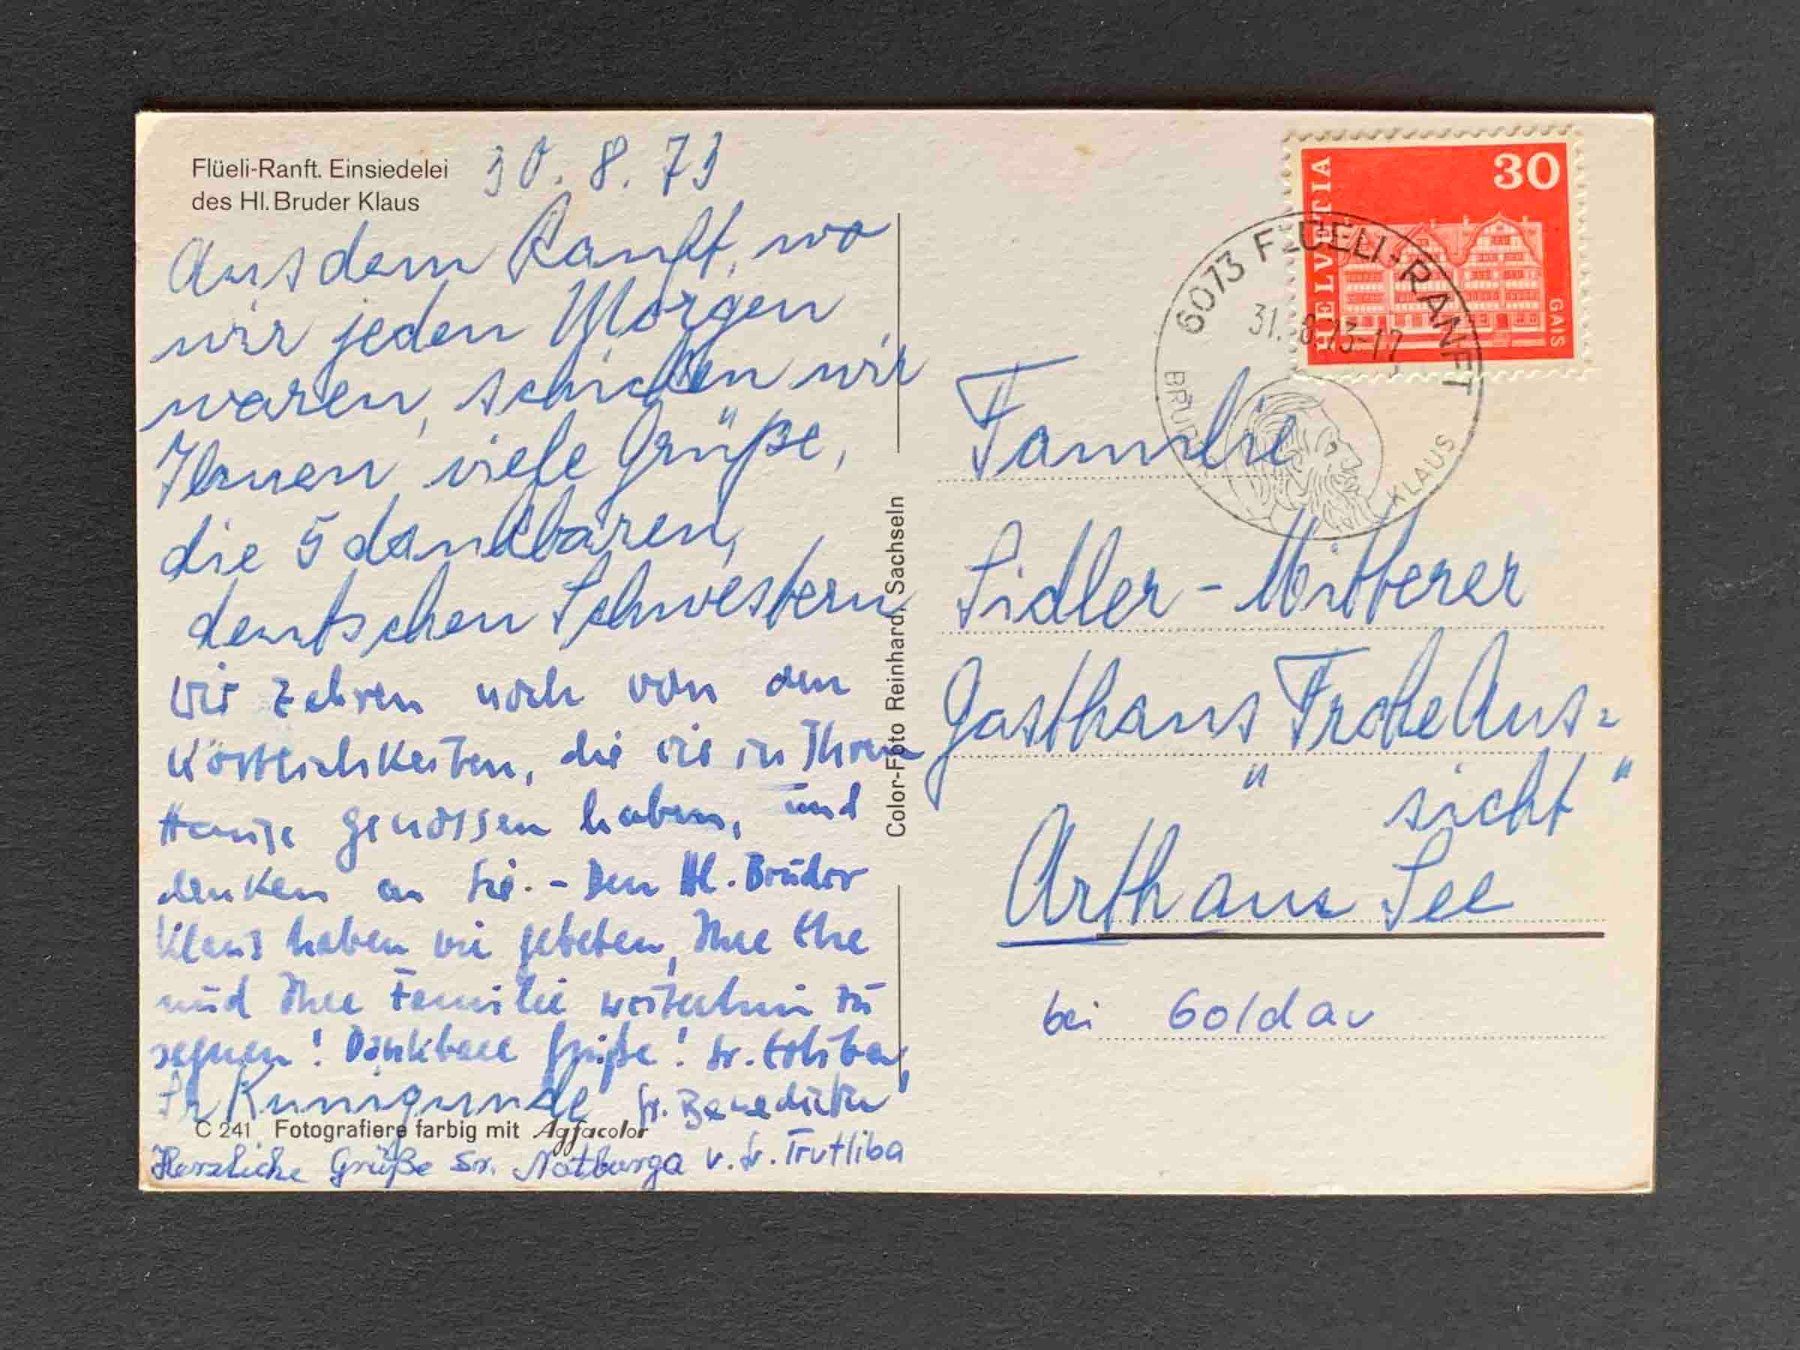 Flüeli-Ranft. Einsiedelei
des Hl. Bruder Klaus
30.8.73
Aus dem Ranft, wo
wir jeden Morgen
waren, schicken wir
Ihnen viele Grüße,
die 5 dankbaren,
deutschen Schwestern
Wir zehren noch von den
Köstlichkeiten, die wir in Ihrem
Hause genossen haben, und
denken an Sie. - Den Hl. Bruder
Klaus haben wir gebeten, Ihre Ehe
und Ihre Familie weiterhin zu
segnen! Dankbare Grüße! Sr.
Sr. Kunigunde Sr. Benedicta
C 241 Fotografiere farbig mit Agfacolor
Herzliche Grüße Sr. Notburga u. Sr. Trutliba
Color-Foto Reinhard, Sachseln
HELVETIA
30
GAIS
6073 FLÜELI-RANFT
31.-8.73-17
BRUDER KLAUS
Familie
Sidler-Mitterer
Gasthaus Frohe Aus=
" sicht "
Arth am See
bei Goldau